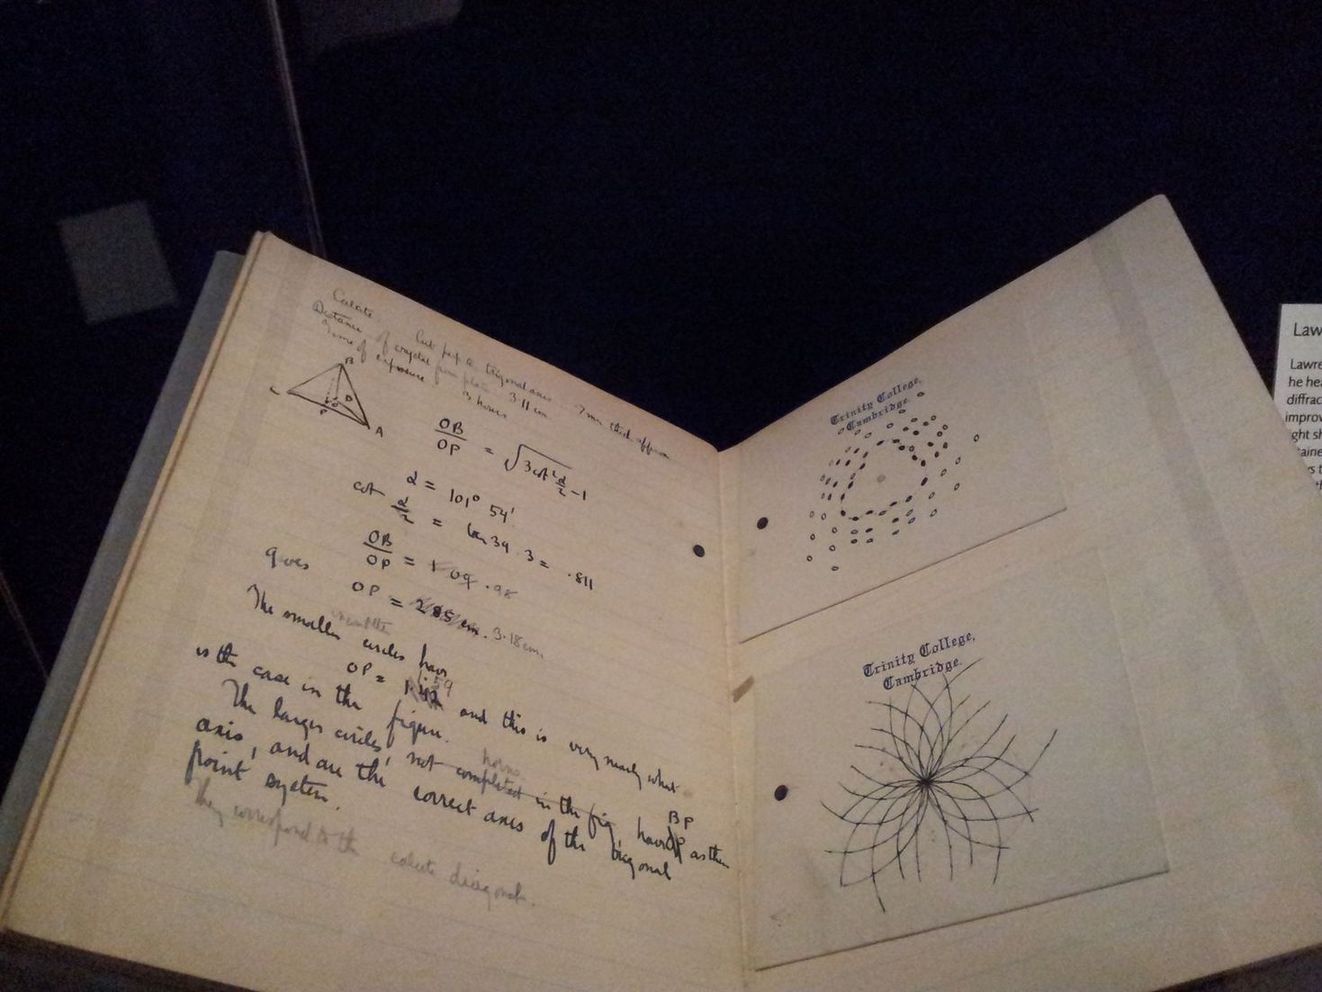 Calcite. Cut perp to trigonal axis. 2 mm thick approx
Distance of crystal from plate 3.11 cm
Time of exposure 3 hours
B
C
D
P
A
OB/OP = √3cot²α/2 -1
α = 101° 54'
cot α/2 = tan 39.3 = .811
gives OB/OP = 1.09 .98
OP = 2.85 cm. 3.18 cm.
The smaller circles have
OP = 1.59 and this is very nearly what
is the case in the figure.
The larger circles, not completed in the fig, have BP as their
axis, and are the correct axes of the trigonal
point system.
They correspond to the calcite diagonals.
Trinity College,
Cambridge.
Trinity College,
Cambridge.
Law
Lawre
he hea
diffrac
improv
ight sh
taine